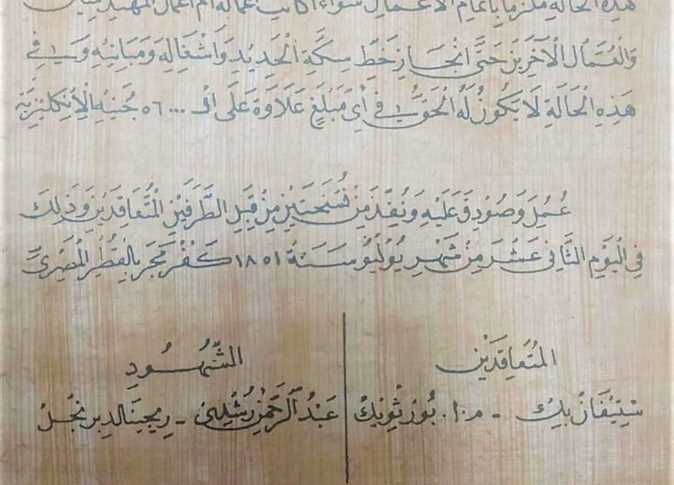 هذه الحالة ملزما باتمام الاعمال سواء اكانت عماله ام اعمال المهندسين
وَالْعُمَّالِ الْآخَرِينَ حَتَّى انْجَازِ خَطِّ سِكَّةِ الْحَدِيدِ وَاشْغَالِهِ وَمَبَانِيهِ وَفِي
هَذِهِ الْحَالَةِ لَا يَكُونُ لَهُ الْحَقُّ فِي أَيِّ مَبْلَغٍ عَلَاوَةً عَلَى الـ ٥٦٠٠٠ جُنَيْهِ الْإِنْكِلِيزِيَّةِ
عُمِلَ وَصُودِقَ عَلَيْهِ وَنُفِّذَ مِنْ نُسْخَتَيْنِ مِنْ قِبَلِ الطَّرَفَيْنِ الْمُتَعَاقِدَيْنِ وَذَلِكَ
فِي الْيَوْمِ الثَّانِي عَشَرَ مِنْ شَهْرِ يُولْيُو سَنَةَ ١٨٥١ كَفْر مَجَر بِالْقُطْرِ الْمِصْرِيِّ
الْمُتَعَاقِدَيْنِ
الشُّهُودِ
سْتِيفَان بِك - م.ا. بُورْثْوِيك
عَبْدُ الرَّحْمَنِ رُشْدِي - رِيجِينَالد بِرنجل